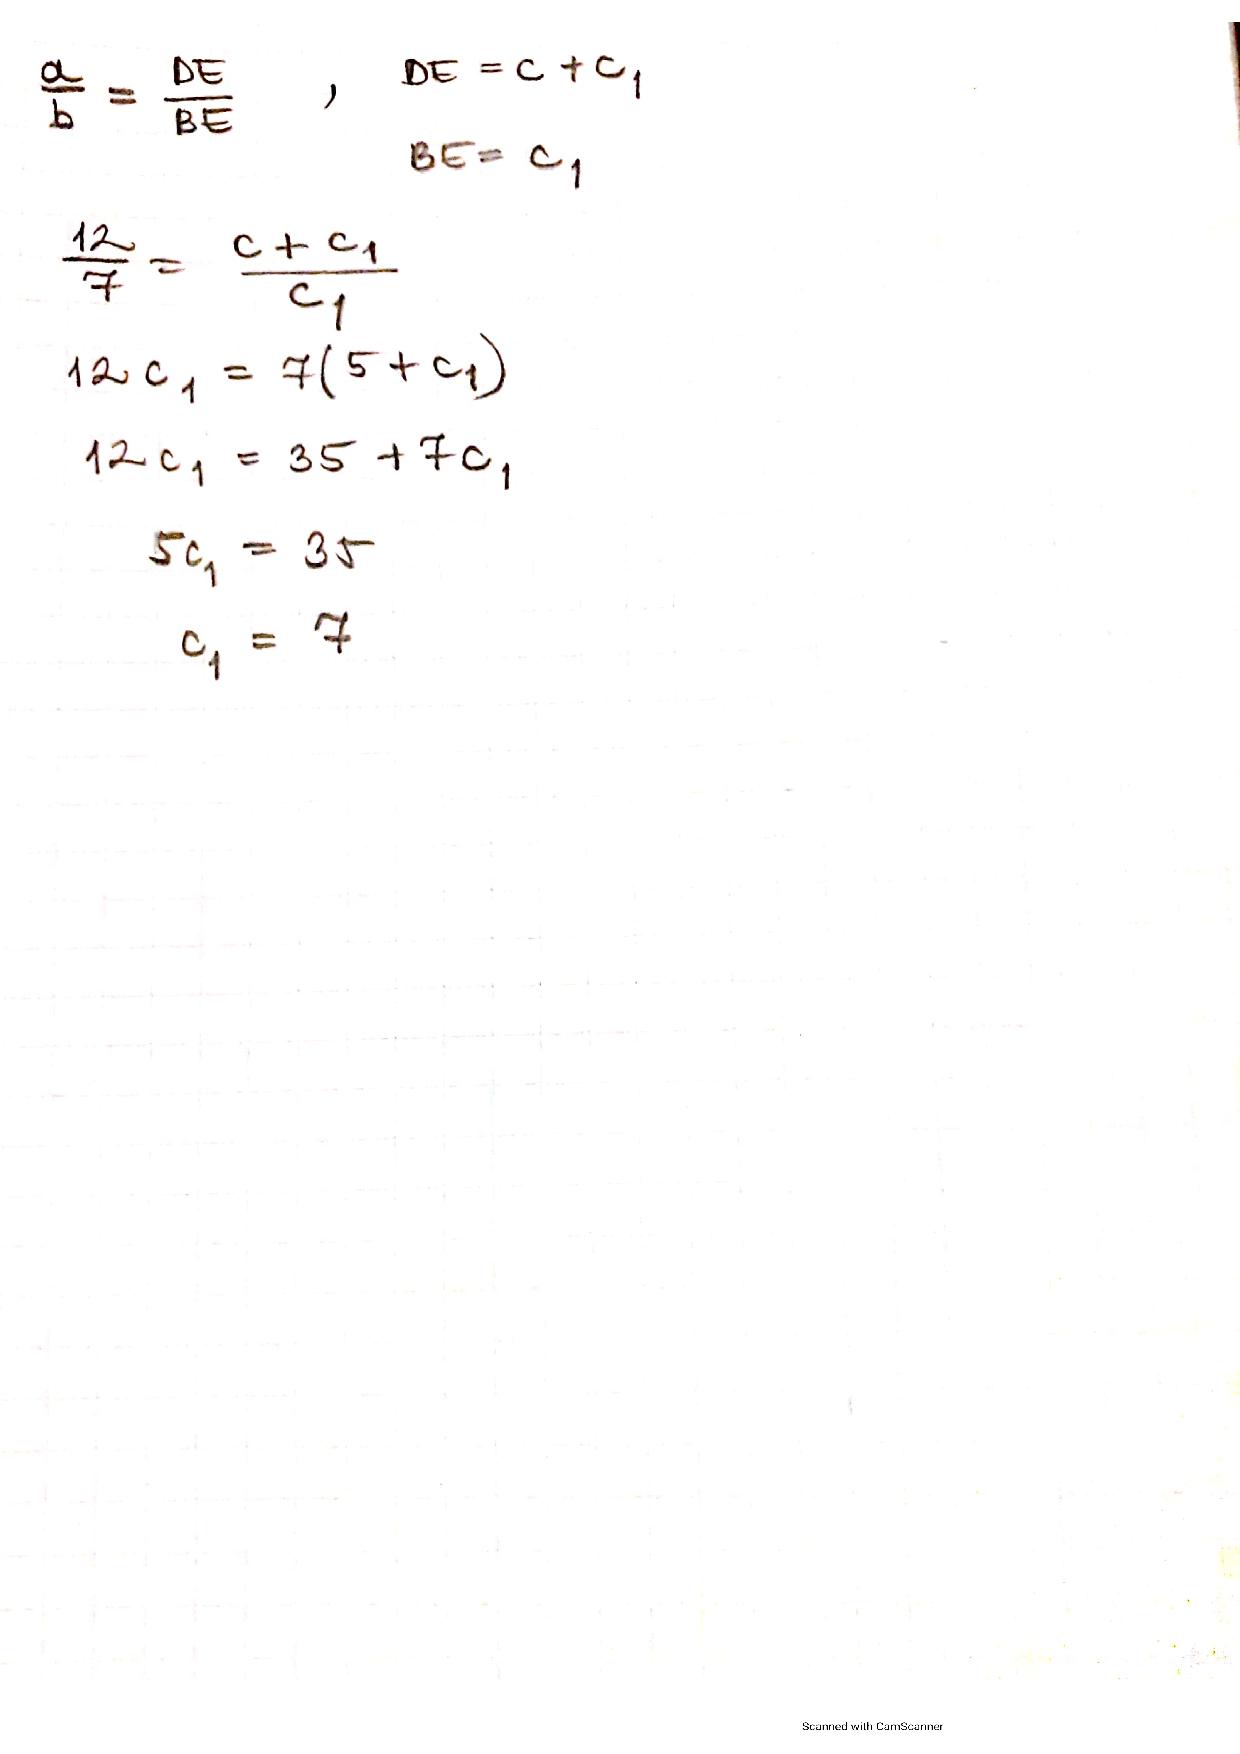 a/b = DE/BE , DE = c + c₁
BE = c₁
12/7 = (c + c₁)/c₁
12c₁ = 7(5 + c₁)
12c₁ = 35 + 7c₁
5c₁ = 35
c₁ = 7
Scanned with CamScanner